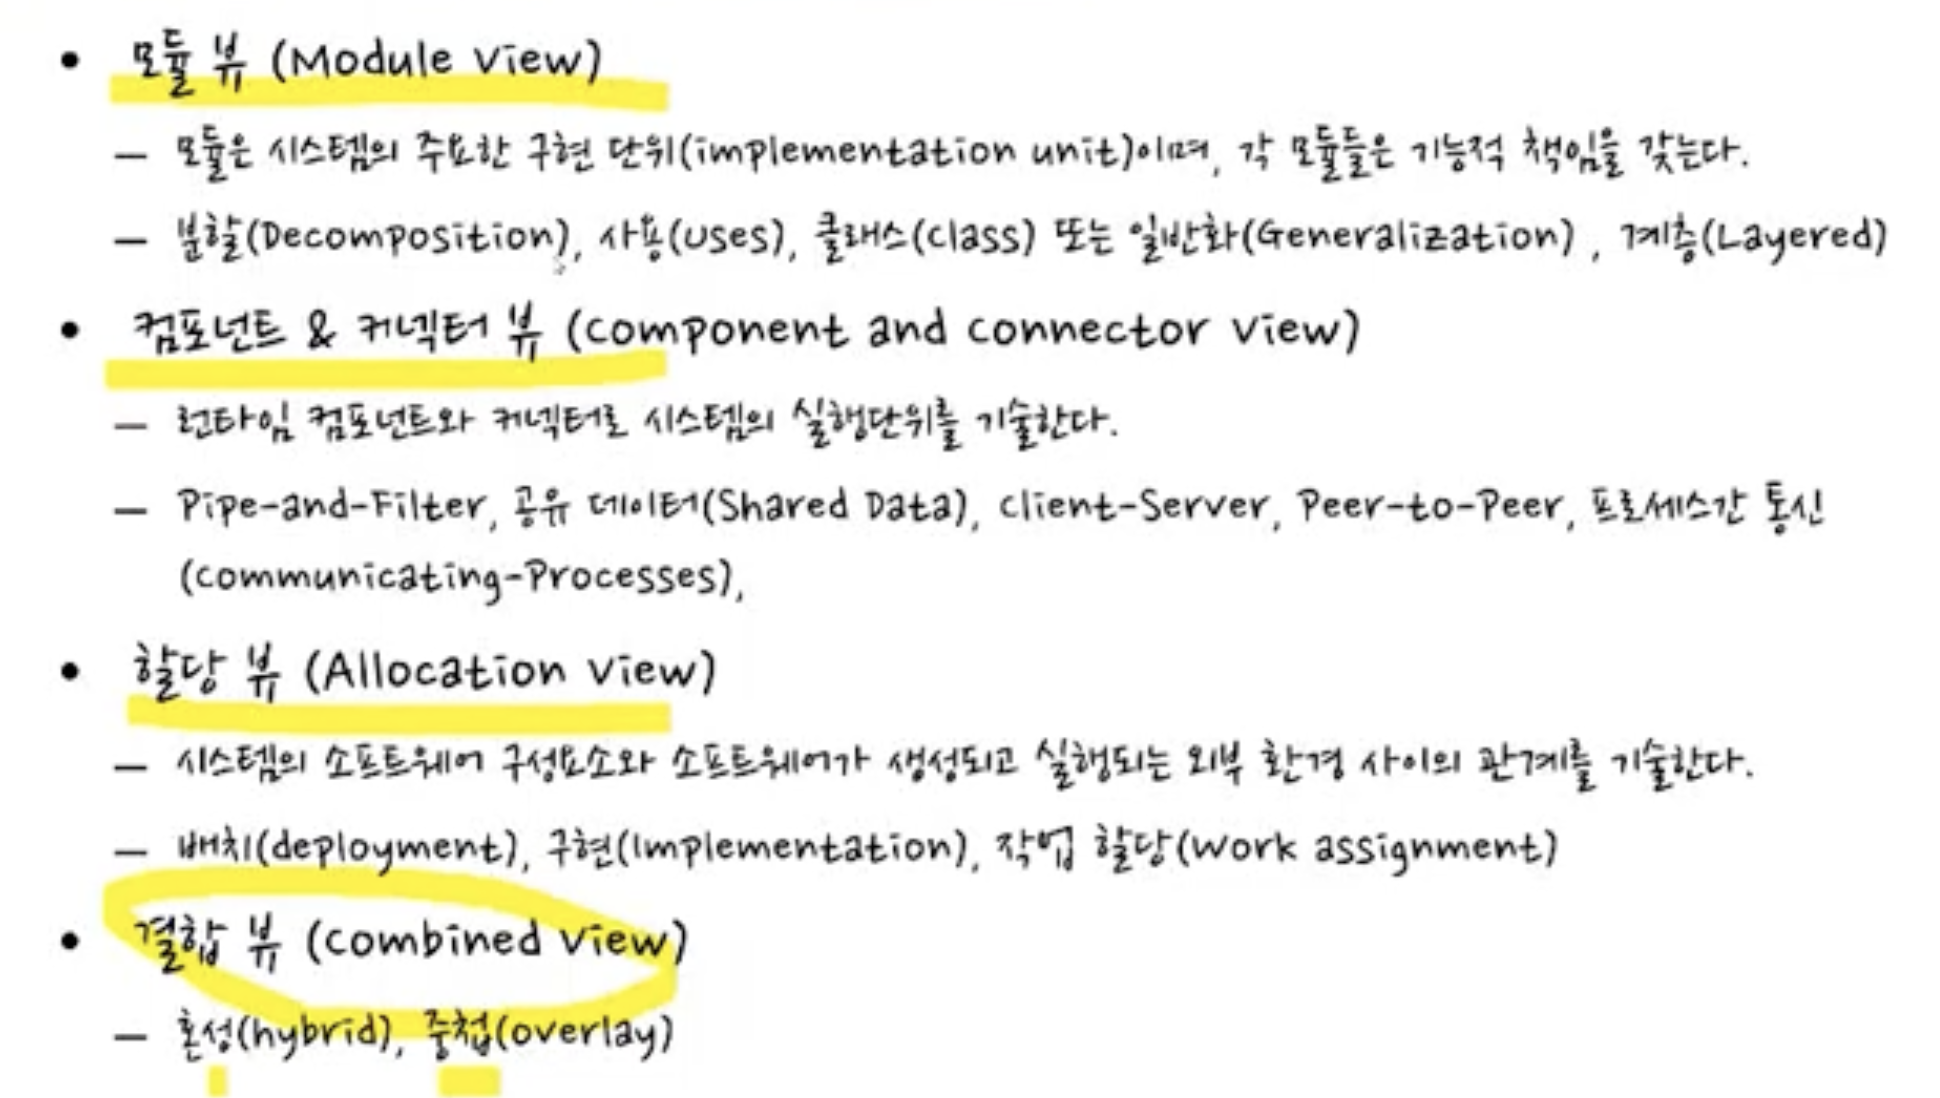 • 모듈 뷰 (Module View)
– 모듈은 시스템의 주요한 구현 단위(implementation unit)이며, 각 모듈들은 기능적 책임을 갖는다.
– 분할(Decomposition), 사용(Uses), 클래스(Class) 또는 일반화(Generalization) , 계층(Layered)
• 컴포넌트 & 커넥터 뷰 (Component and Connector View)
– 런타임 컴포넌트와 커넥터로 시스템의 실행단위를 기술한다.
– Pipe-and-Filter, 공유 데이터(Shared Data), Client-Server, Peer-to-Peer, 프로세스간 통신
(Communicating-Processes),
• 할당 뷰 (Allocation View)
– 시스템의 소프트웨어 구성요소와 소프트웨어가 생성되고 실행되는 외부 환경 사이의 관계를 기술한다.
– 배치(deployment), 구현(Implementation), 작업 할당(Work assignment)
• 결합 뷰 (Combined View)
– 혼성(hybrid), 중첩(overlay)